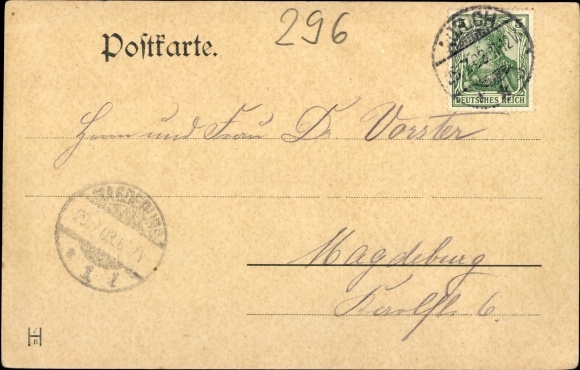 296
Postkarte.
DEUTSCHES REICH
Herrn und Frau Dr. Vorster
MAGDEBURG
1
Magdeburg
6.
H